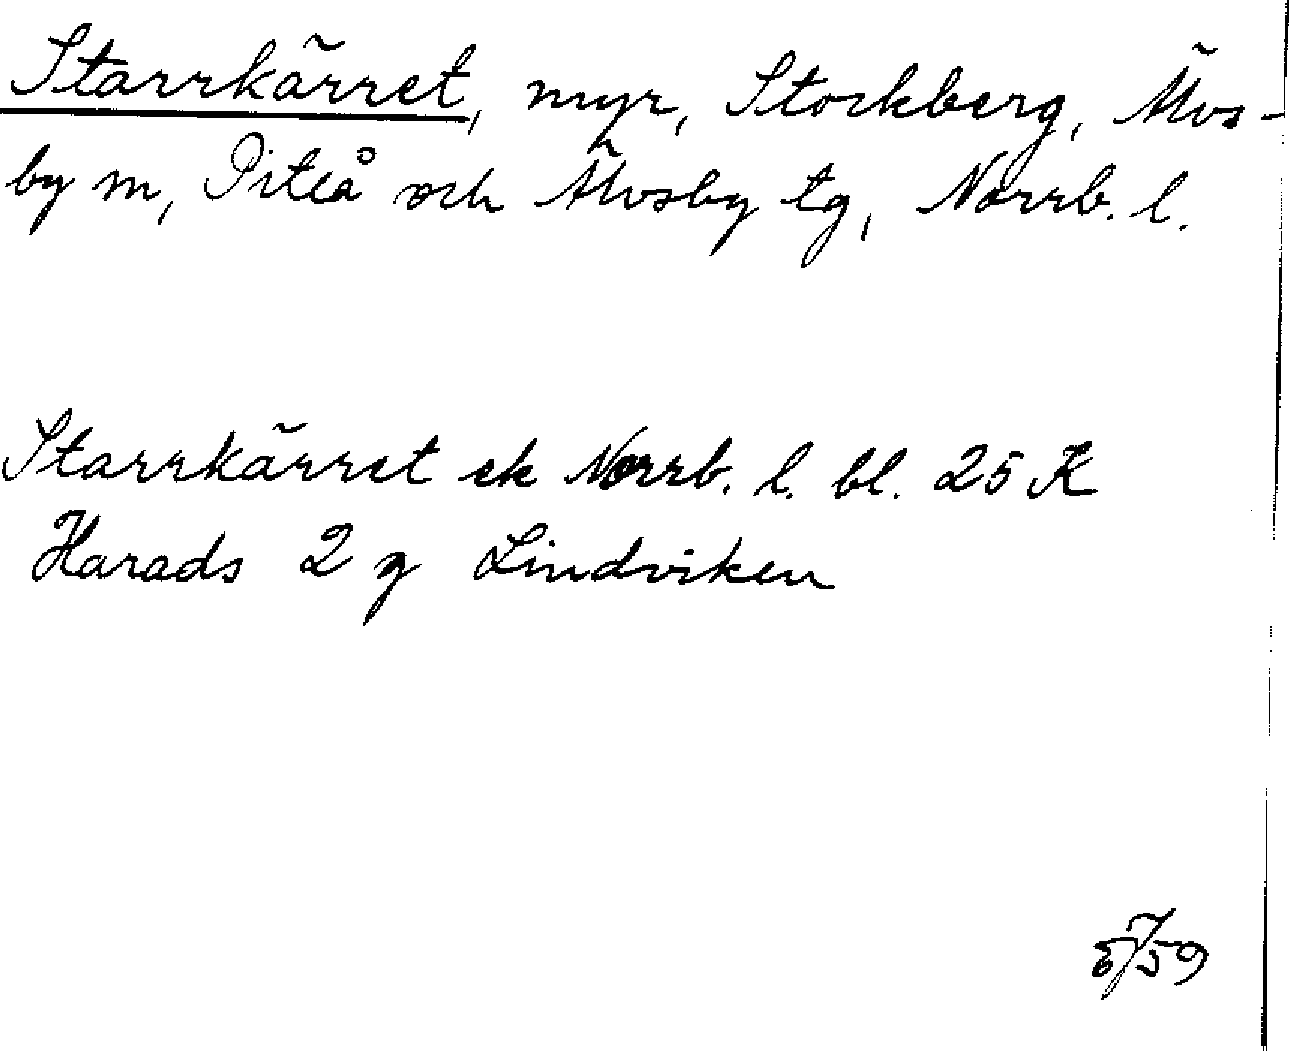 Starrkärret, myr, Stockberg, Älvs-
by sn, Piteå och Älvsby tg, Norrb. l.
Starrkärret ek Norrb. l. bl. 25 K
Harads 2 g Lindviken
59